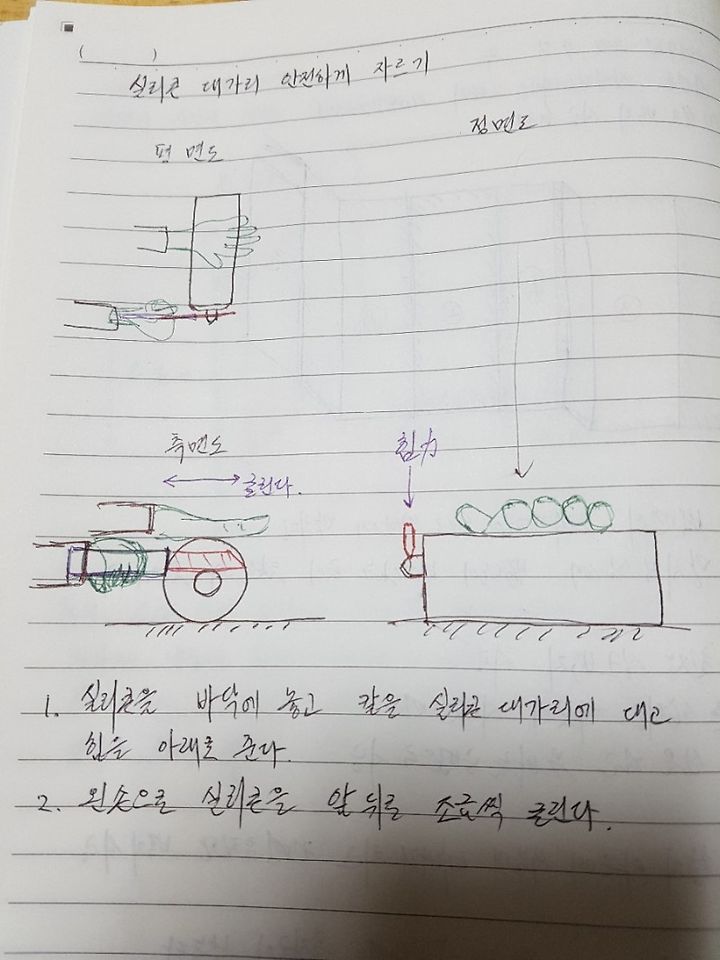 ( )
실리콘 대가리 안전하게 자르기
정면도
평면도
측면도
힘力
굴린다.
1. 실리콘을 바닥에 놓고 칼을 실리콘 대가리에 대고
힘을 아래로 준다.
2. 왼손으로 실리콘을 앞뒤로 조금씩 굴린다.